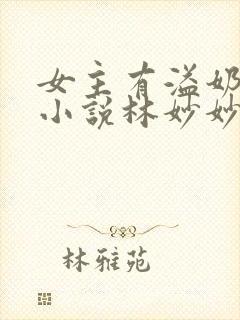 女主有溢奶
小说林妙妙
林雅苑